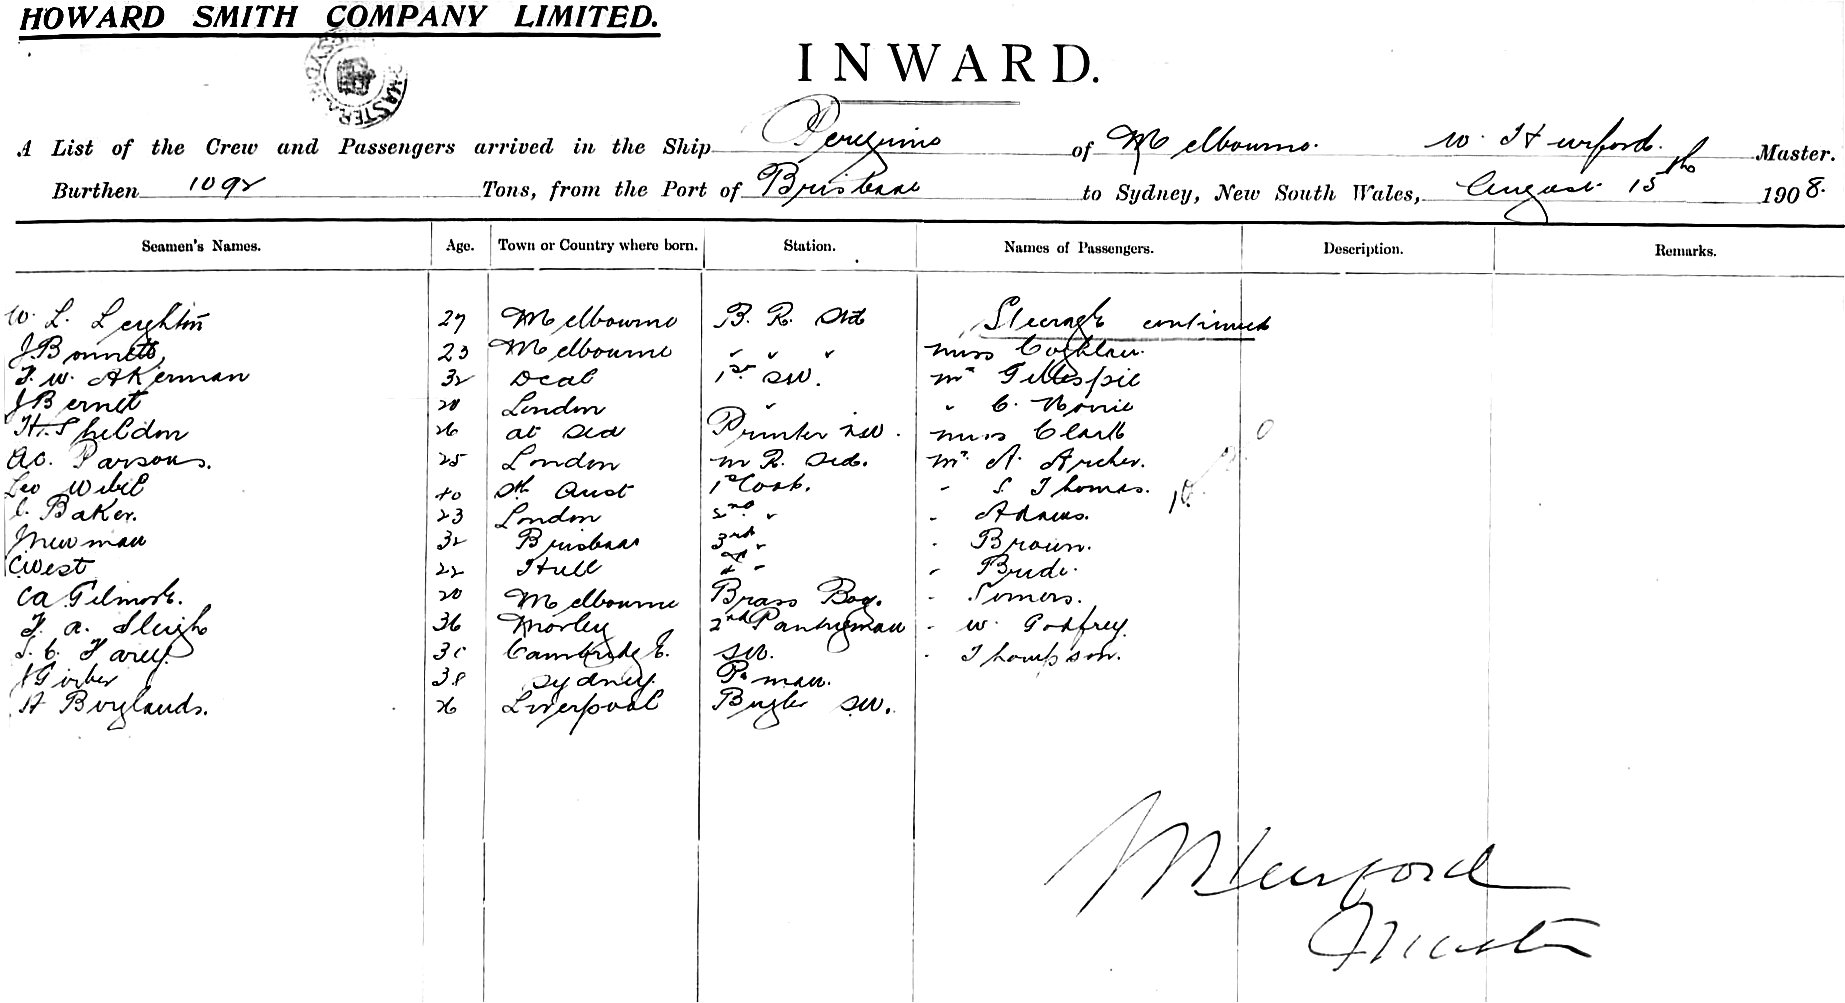 HOWARD SMITH COMPANY LIMITED.
INWARD.
A List of the Crew and Passengers arrived in the Ship Peregrine of Melbourne. W. Hurford. Master.
Burthen 1092 Tons, from the Port of Brisbane to Sydney, New South Wales, August 15th 1908.
Seamen's Names. Age. Town or Country where born. Station. Names of Passengers. Description. Remarks.
W. L. Leighton 27 Melbourne B. R. Std Steerage continued
J Bonnetts 23 Melbourne " " " Miss Coghlan.
F. W. Akerman 32 Deal 1st SW. Mr Gillespie
J Bernet 20 London " " C.
H. Sheldon 26 at Sea SW. Miss Clark
AC. Parsons. 25 London M R. Std. Mr. A. Archer.
Leo 40 Sth Aust 1st Cook. " S. Thomas.
C. Baker. 23 London 2nd " " Adams.
J Newman 32 Brisbane 3rd " " Brown.
C West 22 Hull 4th " "
CA Gilmore. 20 Melbourne Brass Boy. " Somers.
F. A. Sleigh 36 Morley 2nd Pantryman " W. Godfrey.
Carey 30 Cambridge. SW. " Thompson.
38 Sydney. P. man.
H Boylands. 26 Liverpool Bugler SW.
Hurford
Master